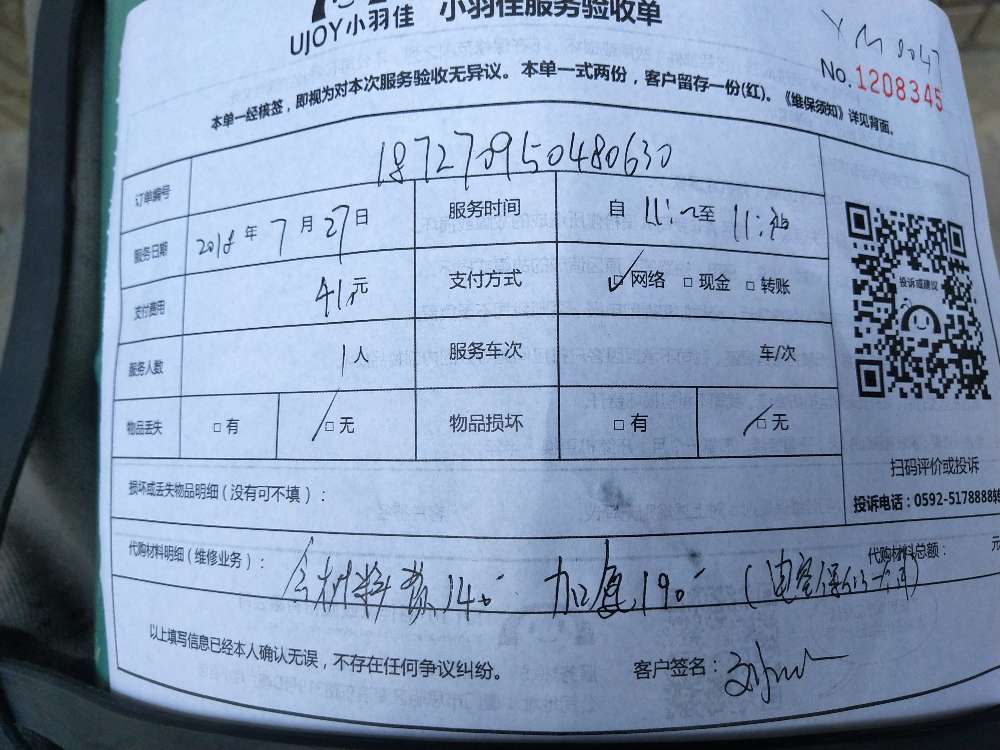 UJOY小羽佳 小羽佳服务验收单
YM0047
No.1208345
本单一经核签，即视为对本次服务验收无异议。本单一式两份，客户留存一份(红)。《维保须知》详见背面。
订单编号 187270950480630
服务日期 2018 年 7 月 27 日 服务时间 自 11: 至 11:
支付费用 41元 支付方式 □网络 □现金 □转账
服务人数 1人 服务车次 车/次
物品丢失 □有 □无 物品损坏 □有 □无
投诉或建议
扫码评价或投诉
投诉电话：0592-5178888转
损坏或丢失物品明细（没有可不填）：
代购材料明细（维修业务）： 代购材料总额： 元
材料费140 加 190
以上填写信息已经本人确认无误，不存在任何争议纠纷。 客户签名：